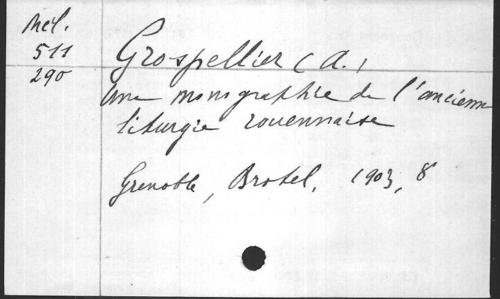 Mél.
511
290
Grospellier (A.)
Une monographie de l'ancienne
liturgie rouennaise
Grenoble, Brotel, 1903, 8